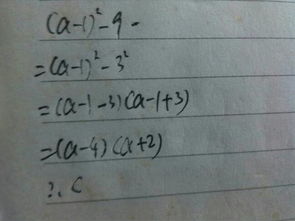 (a-1)²-9
=(a-1)²-3²
=(a-1-3)(a-1+3)
=(a-4)(a+2)
C